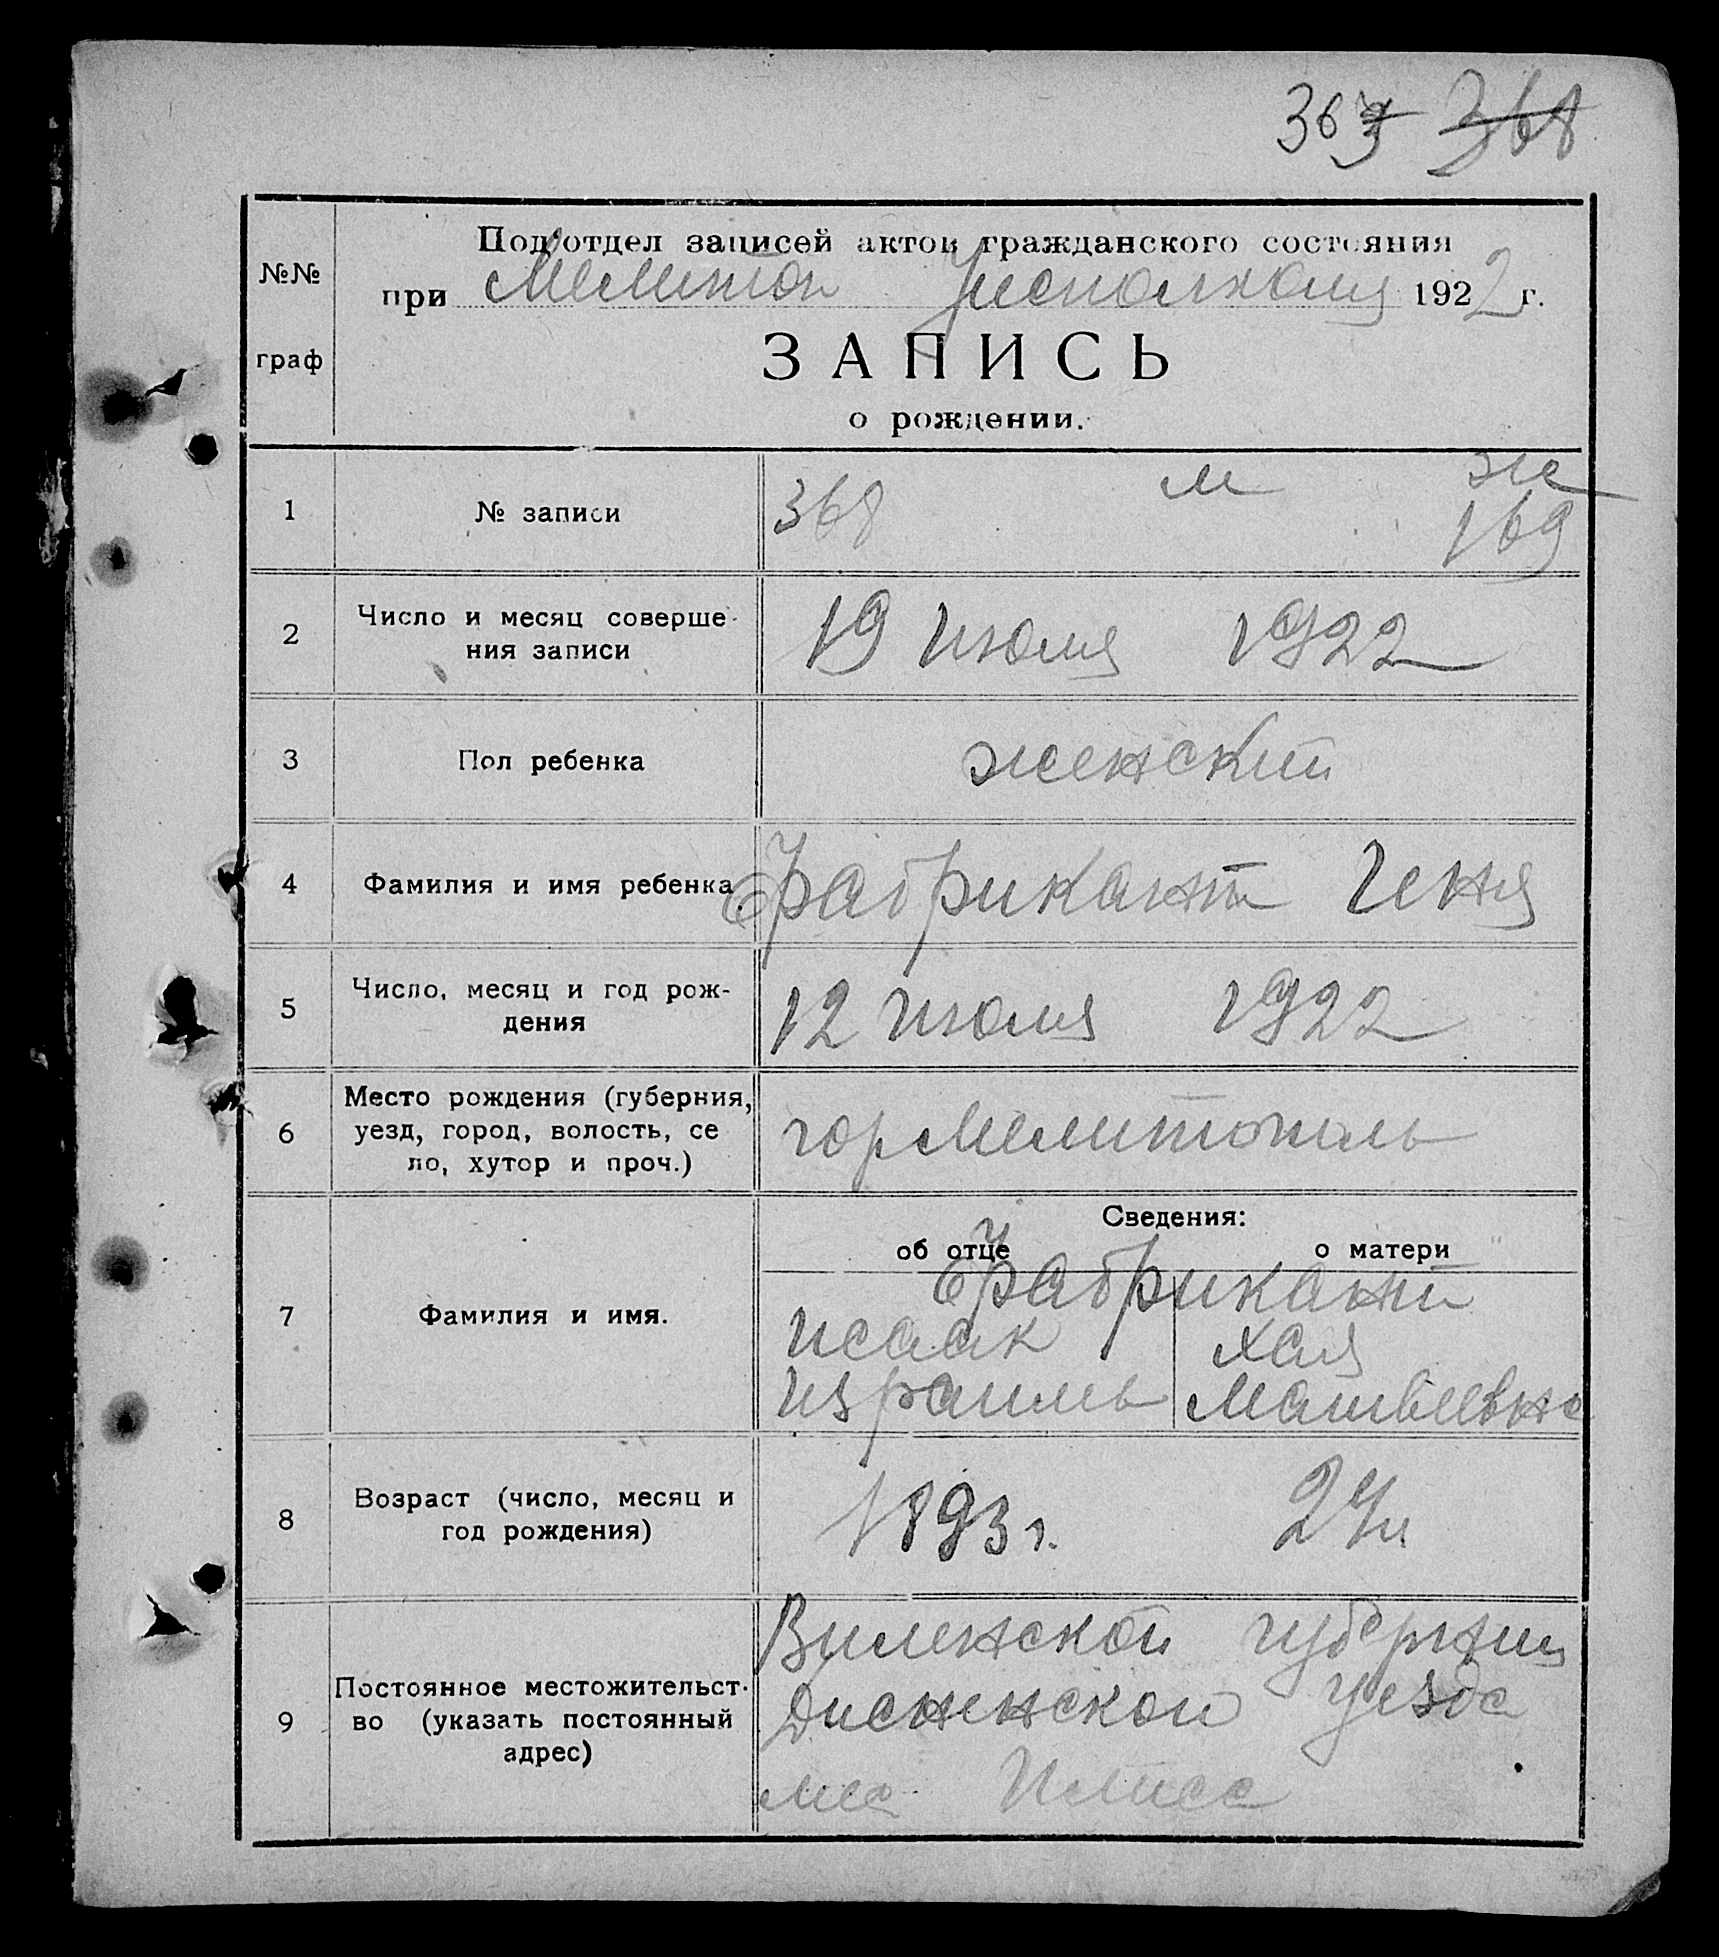 363 368
№№ граф
Подотдел записей актов гражданского состояния
при Мелитоп Уисполкома 1922 г.
ЗАПИСЬ
о рождении.
м же
1 № записи 368 169
2 Число и месяц соверше-
ния записи 19 июля 1922
3 Пол ребенка женский
4 Фамилия и имя ребенка Фабрикант Геня
5 Число, месяц и год рож-
дения 12 июля 1922
6 Место рождения (губерния,
уезд, город, волость, се
ло, хутор и проч.) гор Мелитополь
Сведения:
об отце о матери
7 Фамилия и имя. Фабрикант
Исаак Хая
Израиль Матвеевна
8 Возраст (число, месяц и
год рождения) 1893 г. 24
9 Постоянное местожительст-
во (указать постоянный
адрес)
Виленской губернии
Дисненской уезда
мес